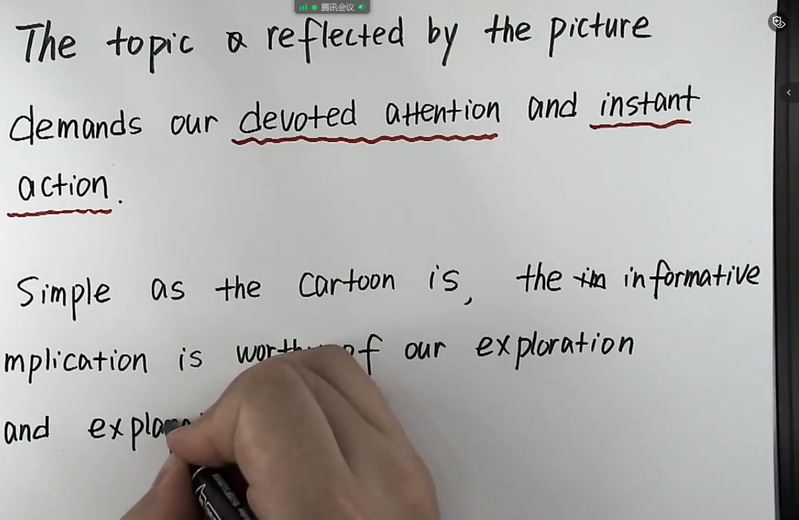 腾讯会议
The topic reflected by the picture
demands our devoted attention and instant
action.
Simple as the cartoon is, the im informative
mplication is of our exploration
and